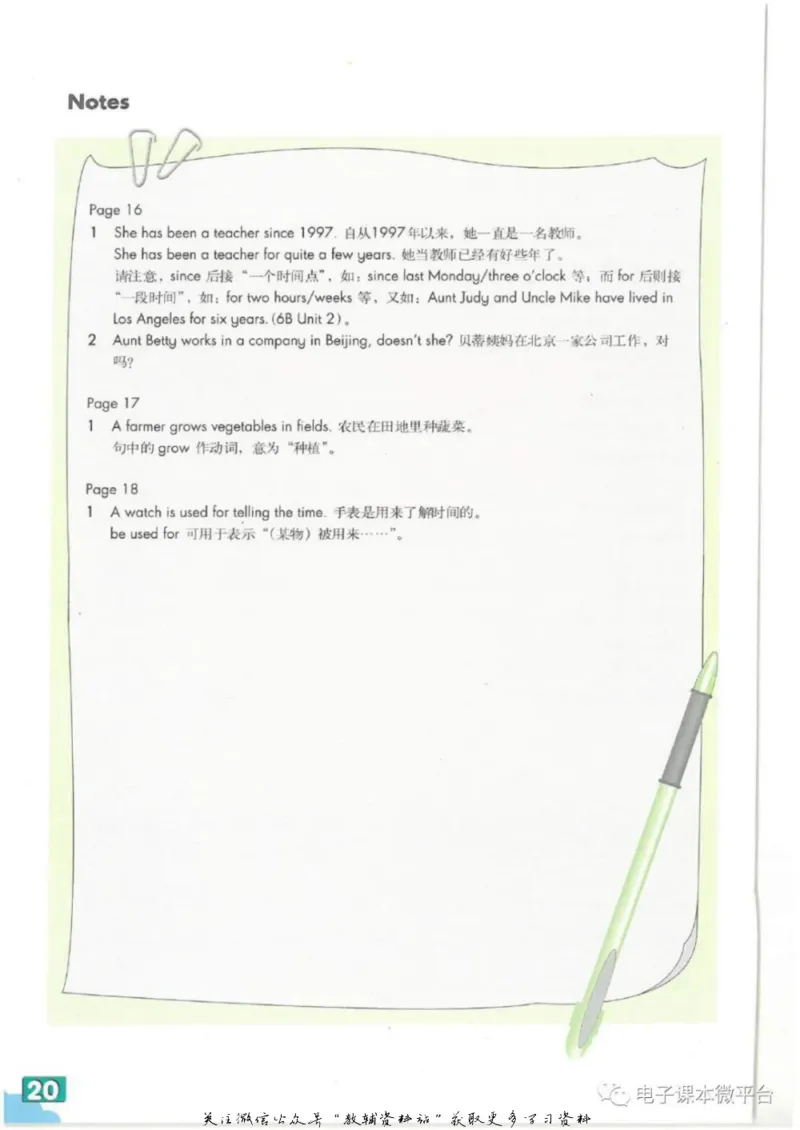 Notes
Page 16
1 She has been a teacher since 1997. 自从1997年以来，她一直是一名教师。
She has been a teacher for quite a few years. 她当教师已经有好些年了。
请注意，since 后接“一个时间点”，如：since last Monday/three o'clock 等；而 for 后则接
“一段时间”，如：for two hours/weeks 等，又如：Aunt Judy and Uncle Mike have lived in
Los Angeles for six years. (6B Unit 2)。
2 Aunt Betty works in a company in Beijing, doesn't she? 贝蒂姨妈在北京一家公司工作，对
吗？
Page 17
1 A farmer grows vegetables in fields. 农民在田地里种蔬菜。
句中的 grow 作动词，意为“种植”。
Page 18
1 A watch is used for telling the time. 手表是用来了解时间的。
be used for 可用于表示“（某物）被用来……”。
20
电子课本微平台
关注微信公众号"教辅资料站"获取更多学习资料